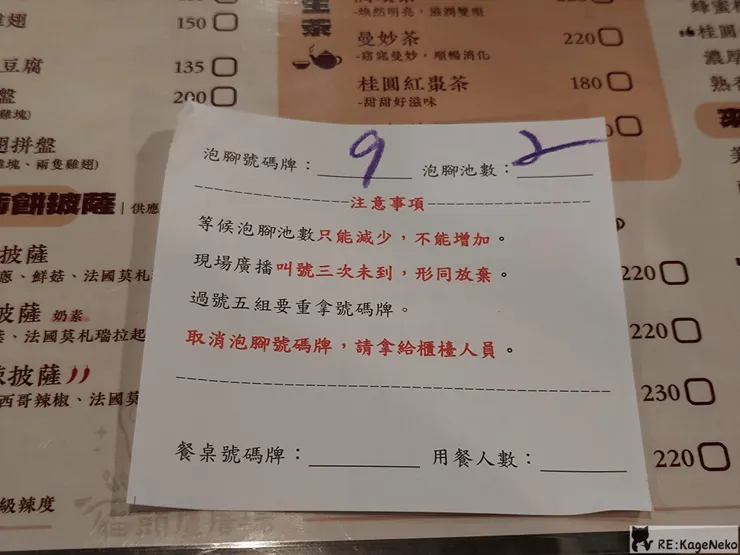 雞翅
150
豆腐
135
盤
200
雞塊)
翅拼盤
雞塊、兩隻雞翅)
餅披薩 | 供應
披薩
蔥、鮮菇、法國莫札
披薩 奶素
、法國莫札瑞拉起
披薩
西哥辣椒、法國莫
級辣度
茶
-煥然明亮,滋潤雙眼
曼妙茶
220
-窈窕曼妙,順暢消化
桂圓紅棗茶
180
-甜甜好滋味
蜂蜜
桂圓
濃厚
熟
220
220
230
220
泡腳號碼牌:9 泡腳池數:2
注意事項
等候泡腳池數只能減少,不能增加。
現場廣播叫號三次未到,形同放棄。
過號五組要重拿號碼牌。
取消泡腳號碼牌,請拿給櫃檯人員。
餐桌號碼牌: 用餐人數:
RE:KageNeko